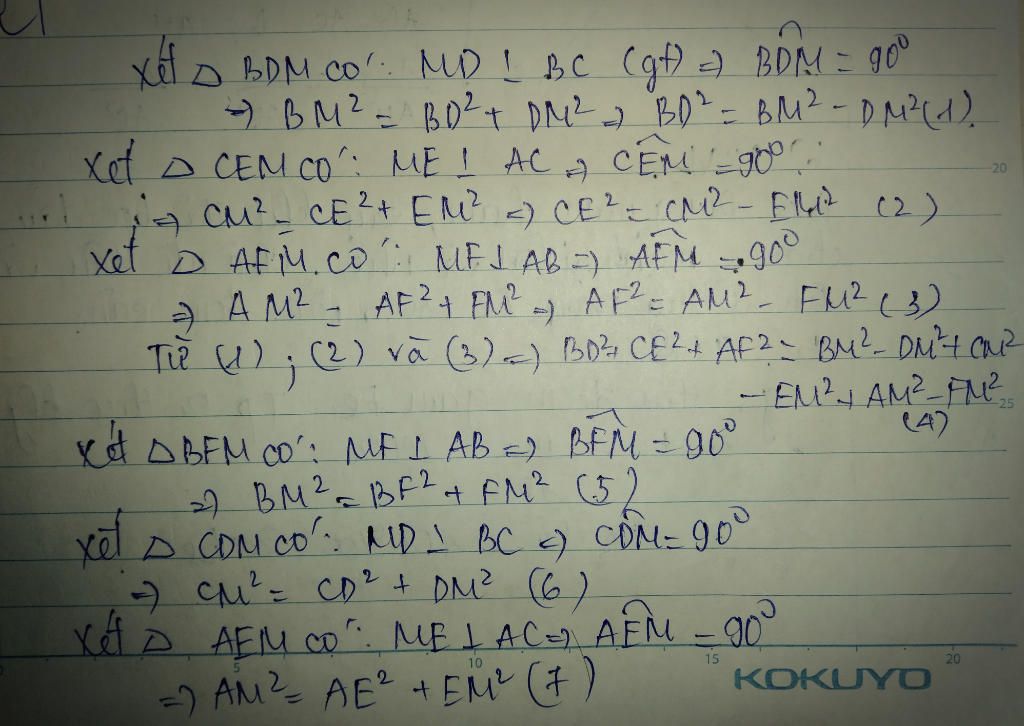 Xét Δ BDM có: MD ⊥ BC (gt) => BDM̂ = 90⁰
=> BM² = BD² + DM² => BD² = BM² - DM² (1).
Xét Δ CEM có: ME ⊥ AC => CEM̂ = 90⁰
=> CM² = CE² + EM² => CE² = CM² - EM² (2)
Xét Δ AFM có: MF ⊥ AB => AFM̂ = 90⁰
=> AM² = AF² + FM² => AF² = AM² - FM² (3)
Từ (1); (2) và (3) => BD² + CE² + AF² = BM² - DM² + CM²
- EM² + AM² - FM²
(4)
Xét Δ BFM có: MF ⊥ AB => BFM̂ = 90⁰
=> BM² = BF² + FM² (5)
Xét Δ CDM có: MD ⊥ BC => CDM̂ = 90⁰
=> CM² = CD² + DM² (6)
Xét Δ AEM có: ME ⊥ AC => AEM̂ = 90⁰
=> AM² = AE² + EM² (7)
20
25
5 10 15 20
KOKUYO